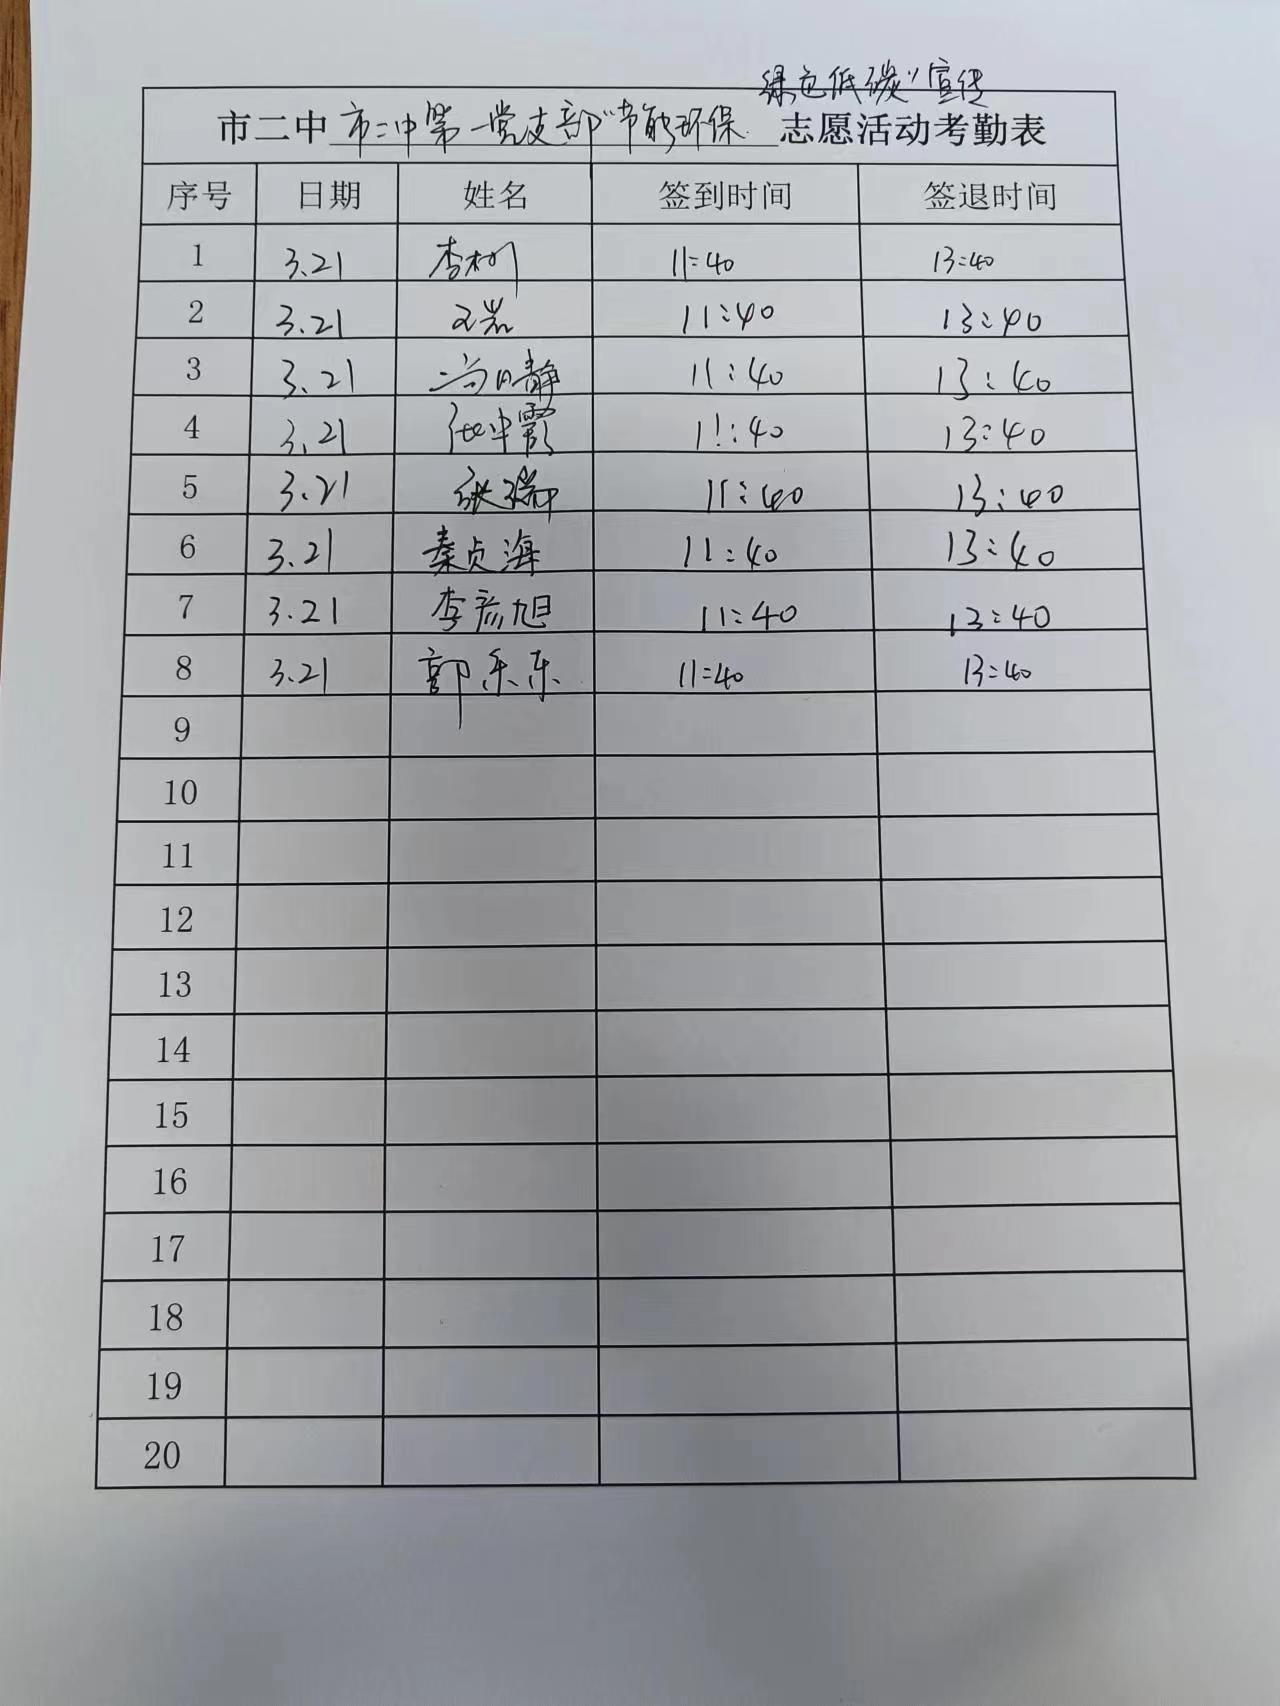 绿色低碳"宣传
市二中市二中第一党支部"节能环保 志愿活动考勤表
序号 日期 姓名 签到时间 签退时间
1 3.21 李树 11:40 13:40
2 3.21 文岩 11:40 13:40
3 3.21 11:40 13:40
4 3.21 11:40 13:40
5 3.21 张瑞 11:40 13:40
6 3.21 秦贞海 11:40 13:40
7 3.21 李彦旭 11:40 13:40
8 3.21 郭乐乐 11:40 13:40
9
10
11
12
13
14
15
16
17
18
19
20